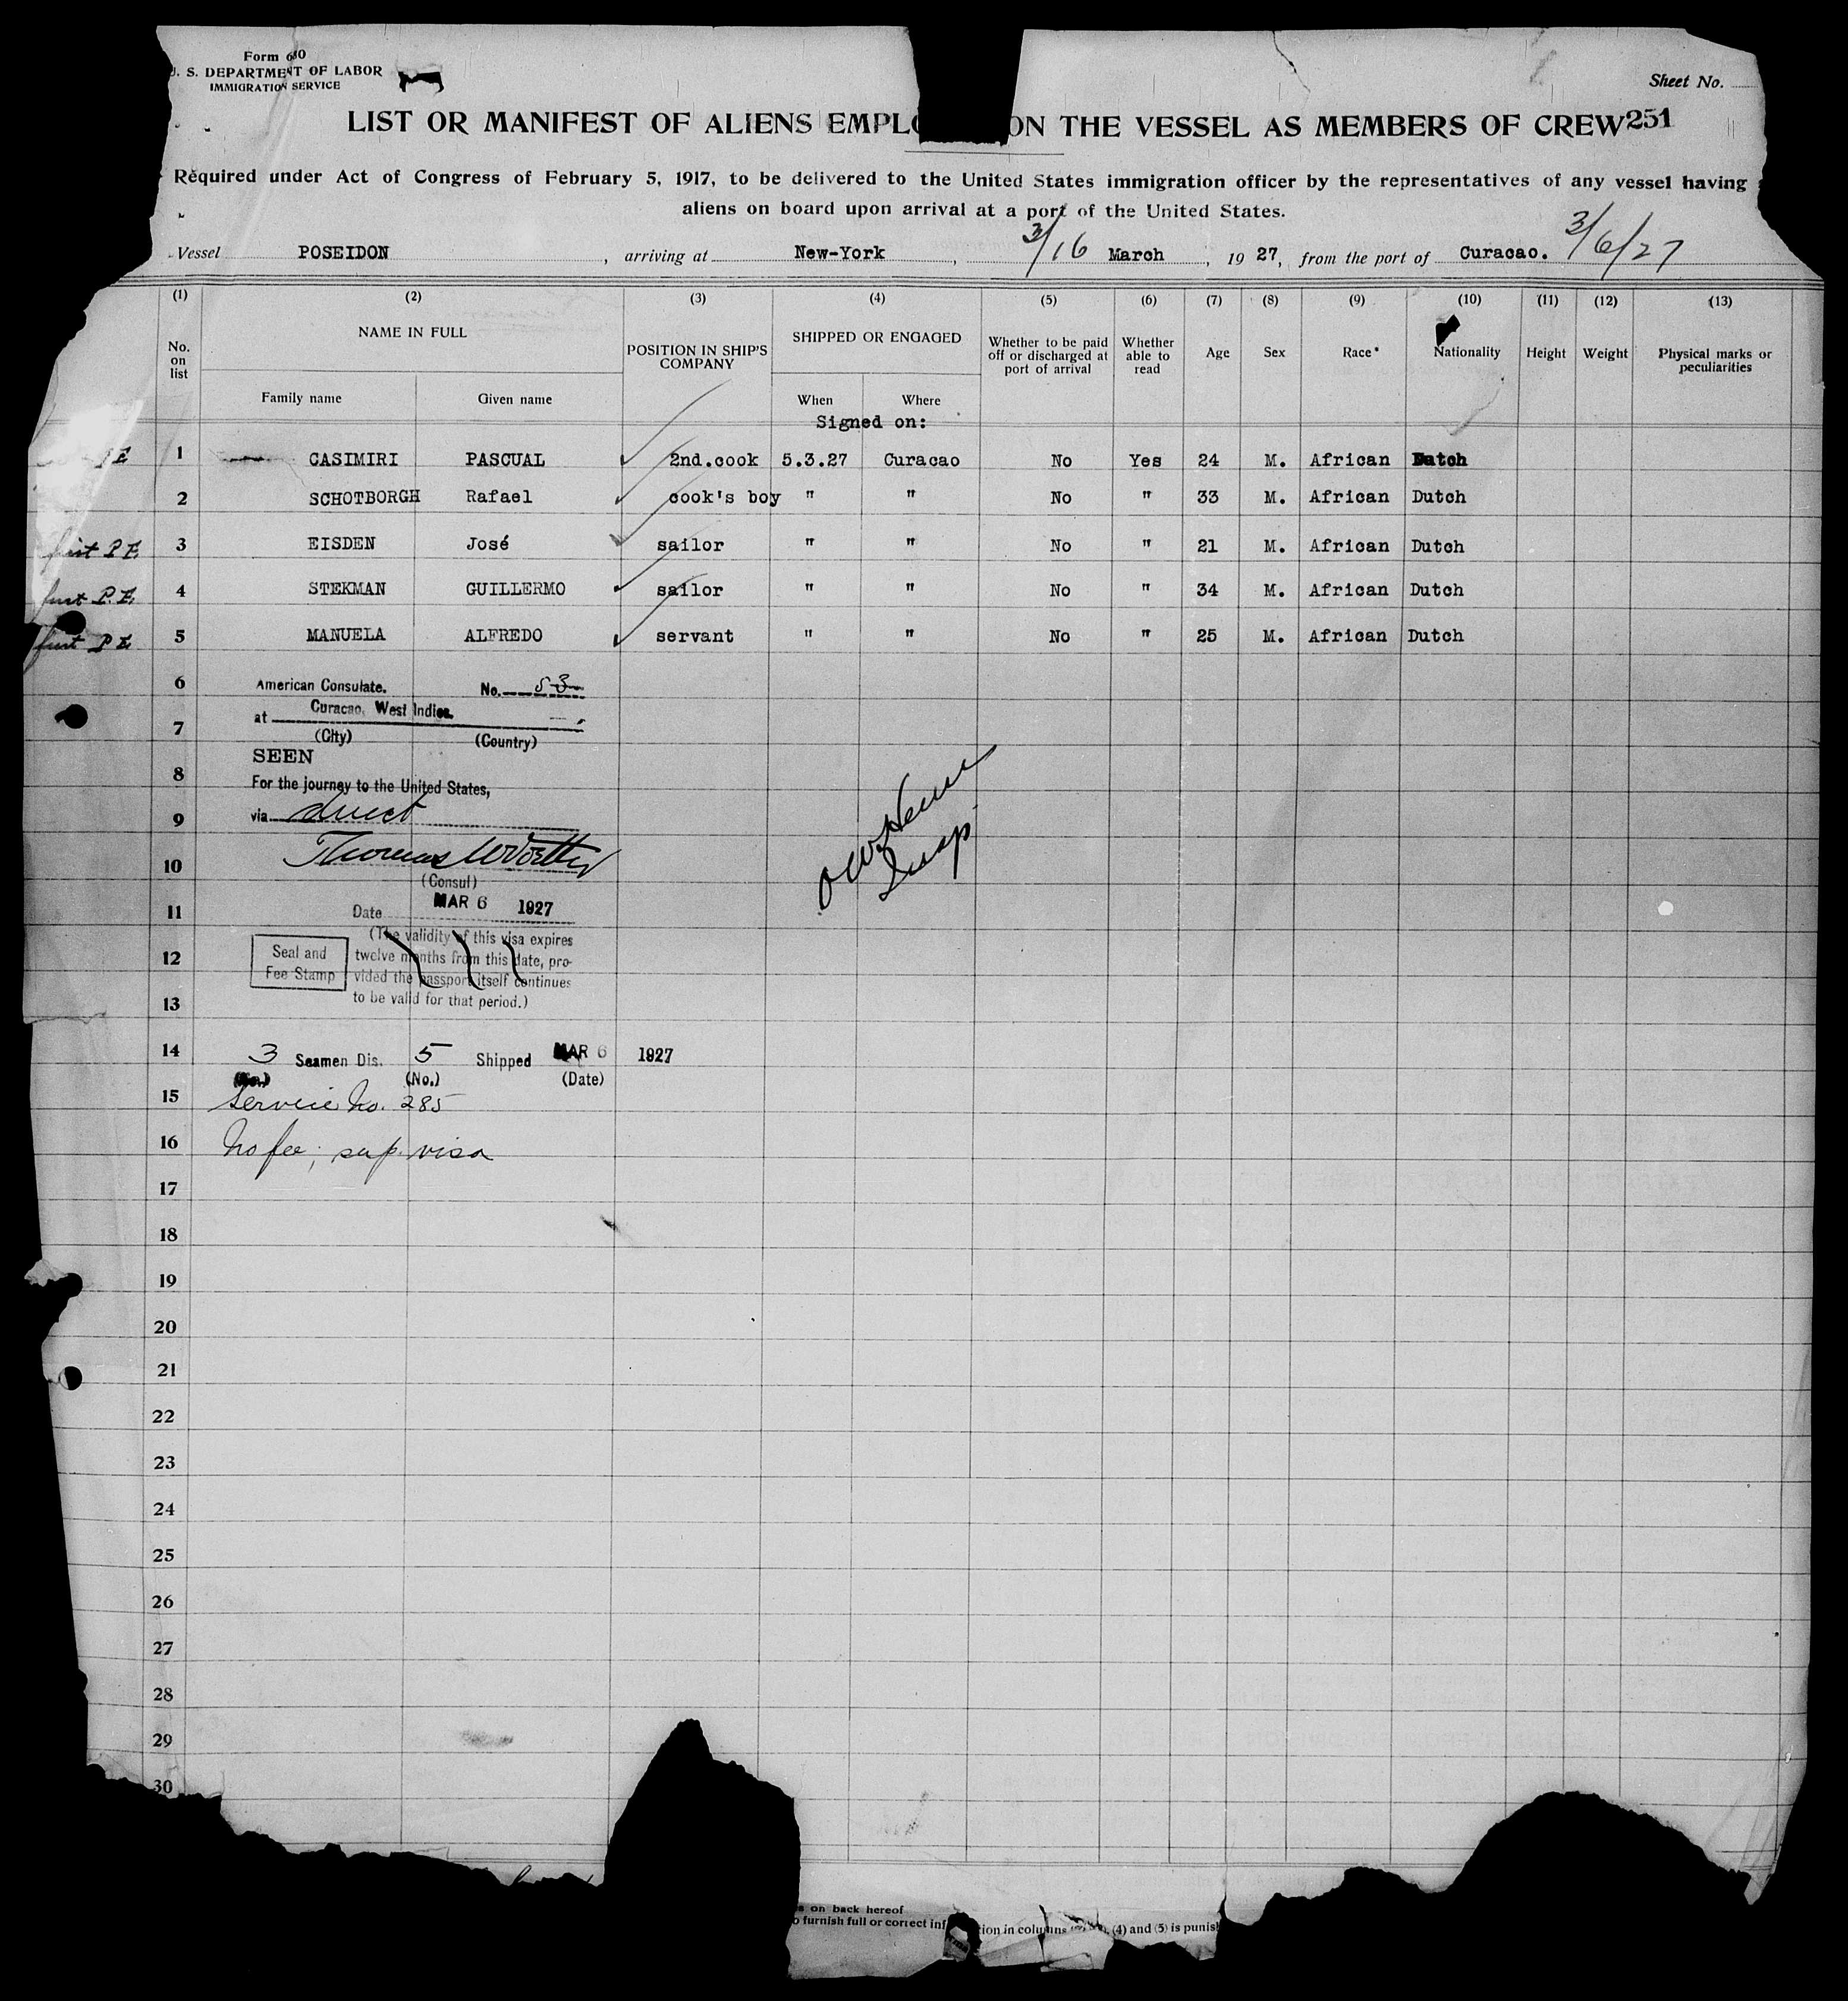 Form 680
U. S. DEPARTMENT OF LABOR
IMMIGRATION SERVICE
Sheet No.
LIST OR MANIFEST OF ALIENS EMPLO ON THE VESSEL AS MEMBERS OF CREW 251
Required under Act of Congress of February 5, 1917, to be delivered to the United States immigration officer by the representatives of any vessel having
aliens on board upon arrival at a port of the United States.
Vessel POSEIDON, arriving at New-York, 3/16 March, 1927, from the port of Curacao. 3/6/27
(1) (2) (3) (4) (5) (6) (7) (8) (9) (10) (11) (12) (13)
No. on list NAME IN FULL POSITION IN SHIP'S COMPANY SHIPPED OR ENGAGED Whether to be paid off or discharged at port of arrival Whether able to read Age Sex Race* Nationality Height Weight Physical marks or peculiarities
Family name Given name When Where
Signed on:
P E 1 CASIMIRI PASCUAL 2nd.cook 5.3.27 Curacao No Yes 24 M. African Dutch
2 SCHOTBORGH Rafael cook's boy " " No " 33 M. African Dutch
first P E. 3 EISDEN José sailor " " No " 21 M. African Dutch
first P.E. 4 STEKMAN GUILLERMO sailor " " No " 34 M. African Dutch
first P E. 5 MANUELA ALFREDO servant " " No " 25 M. African Dutch
6 American Consulate. No. 53
at Curacao, West Indies.
7 (City) (Country)
SEEN
8 For the journey to the United States,
9 via direct
10 Thomas W Voetter
(Consul)
11 Date MAR 6 1927
(The validity of this visa expires
12 Seal and Fee Stamp twelve months from this date, pro-
vided the passport itself continues
13 to be valid for that period.)
Insp
14 3 Seamen Dis. 5 Shipped MAR 6 1927
(No.) (No.) (Date)
15 Service No. 285
16 No fee; sup. visa
17
18
19
20
21
22
23
24
25
26
27
28
29
30
s on back hereof
o furnish full or correct inf tion in columns (4) and (5) is punish